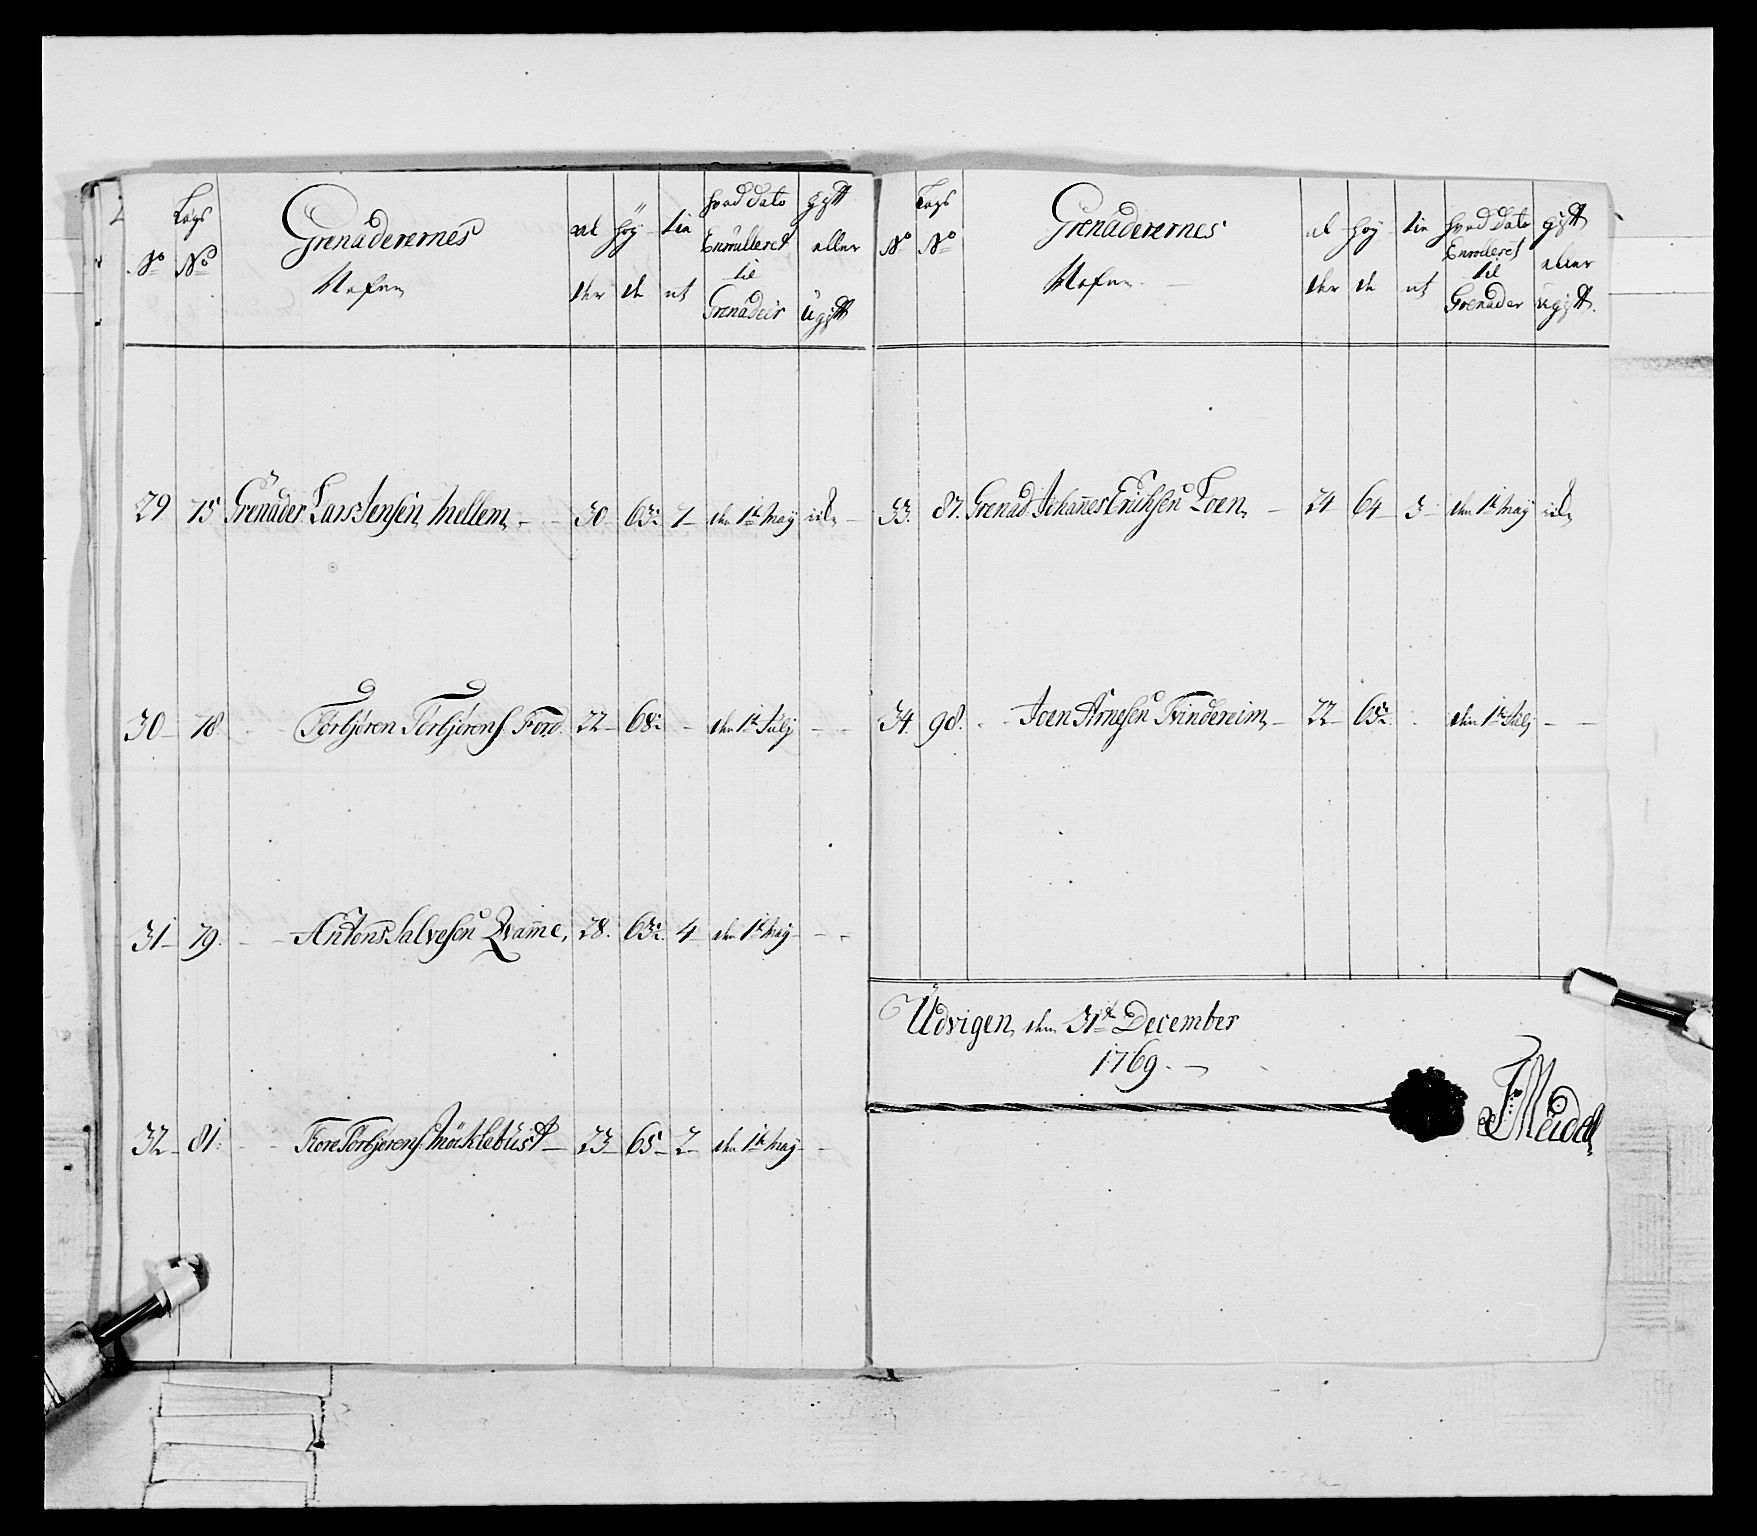 No Lægs No Grenaderernes Nafne al der høy de lin nt hvad dato Enrulleret til Grenadeir gift eller ugift
29 75 Grenader Lars Jensen Mellem 30 63½ 1 den 1te May
30 78 Torbjøren Torbjørens: Ford. 22 68½ den 1te July
31 79. Antons Salvesen Qvamme, 28. 63½ 4 den 1te May
32 81. Tore Torbjørens: Möhlebust 23 65 2 den 1te May
No Lægs No Grenaderernes Nafne al der høy de lin nt hvad dato Enrulleret til Grenader gift eller ugift.
33. 87. Grenad. Johannes Erichsen Loen, 24 64 3 den 1te May
34. 98. Joen Arnesen Tvindereim, 22 65½ den 1te July
Udvigen, den 31te December
1769.